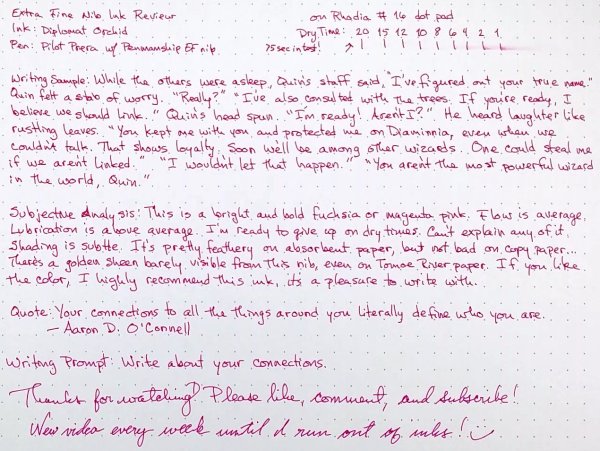 Extra Fine Nib Ink Review on Rhodia # 16 dot pad
Ink: Diplomat Orchid Dry Time: 20 15 12 10 8 6 4 2 1
Pen: Pilot Prera w/ Penmanship EF nib 75 sec intest!
Writing Sample: While the others were asleep, Quin's staff said, "I've figured out your true name."
Quin felt a stab of worry. "Really?" "I've also consulted with the trees. If you're ready, I
believe we should link." Quin's head spun. "I'm ready! Aren't I?" He heard laughter like
rustling leaves. "You kept me with you and protected me on Diaminnia, even when we
couldn't talk. That shows loyalty. Soon we'll be among other wizards. One could steal me
if we aren't linked." "I wouldn't let that happen." "You aren't the most powerful wizard
in the world, Quin."
Subjective Analysis: This is a bright and bold fuchsia or magenta pink. Flow is average.
Lubrication is above average. I'm ready to give up on dry times. Can't explain any of it.
Shading is subtle. It's pretty feathery on absorbent paper, but not bad on copy paper...
There's a golden sheen barely visible from this nib, even on Tomoe River paper. If you like
the color, I highly recommend this ink, it's a pleasure to write with.
Quote: Your connections to all the things around you literally define who you are.
— Aaron D. O'Connell
Writing Prompt: Write about your connections.
Thanks for watching! Please like, comment, and subscribe!
New video every week until I run out of inks!